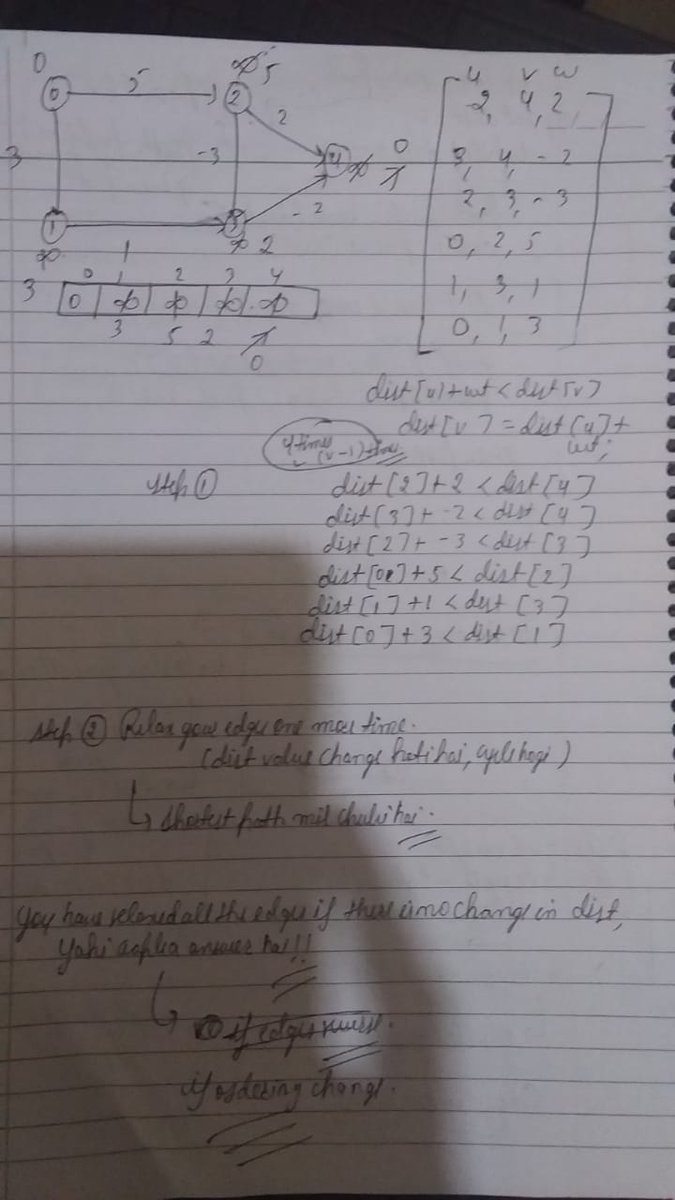 0
5
∞ 5
0
2
2
3
-3
4
∞ 7 0
1
3
-2
∞
1
∞ 2
0 1 2 3 4
3
0 ∞ ∞ ∞ ∞
3 5 2 7
0
u v w
2, 4, 2
3, 4, -2
2, 3, -3
0, 2, 5
1, 3, 1
0, 1, 3
dist[u]+wt < dist[v]
dist[v] = dist[u]+
wt;
4 times
(v-1) times
step ①
dist[2]+2 < dist[4]
dist[3]+ -2 < dist[4]
dist[2]+ -3 < dist[3]
dist[0]+5 < dist[2]
dist[1]+1 < dist[3]
dist[0]+3 < dist[1]
step ② Relax your edge one more time.
(dist value change hoti hai, cycle hogi)
↳ shortest path mil chuki hai.
You have relaxed all the edges if there is no change in dist,
Yahi aapka answer hai!!
↳ if edges
if ordering change.